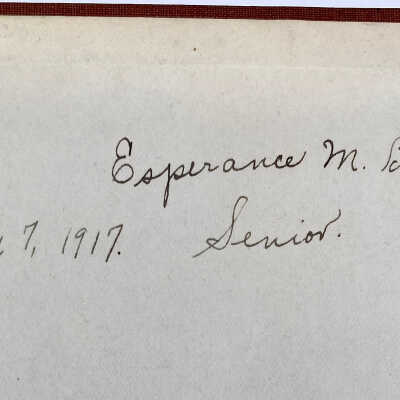 Esperance M.
7, 1917. Senior.